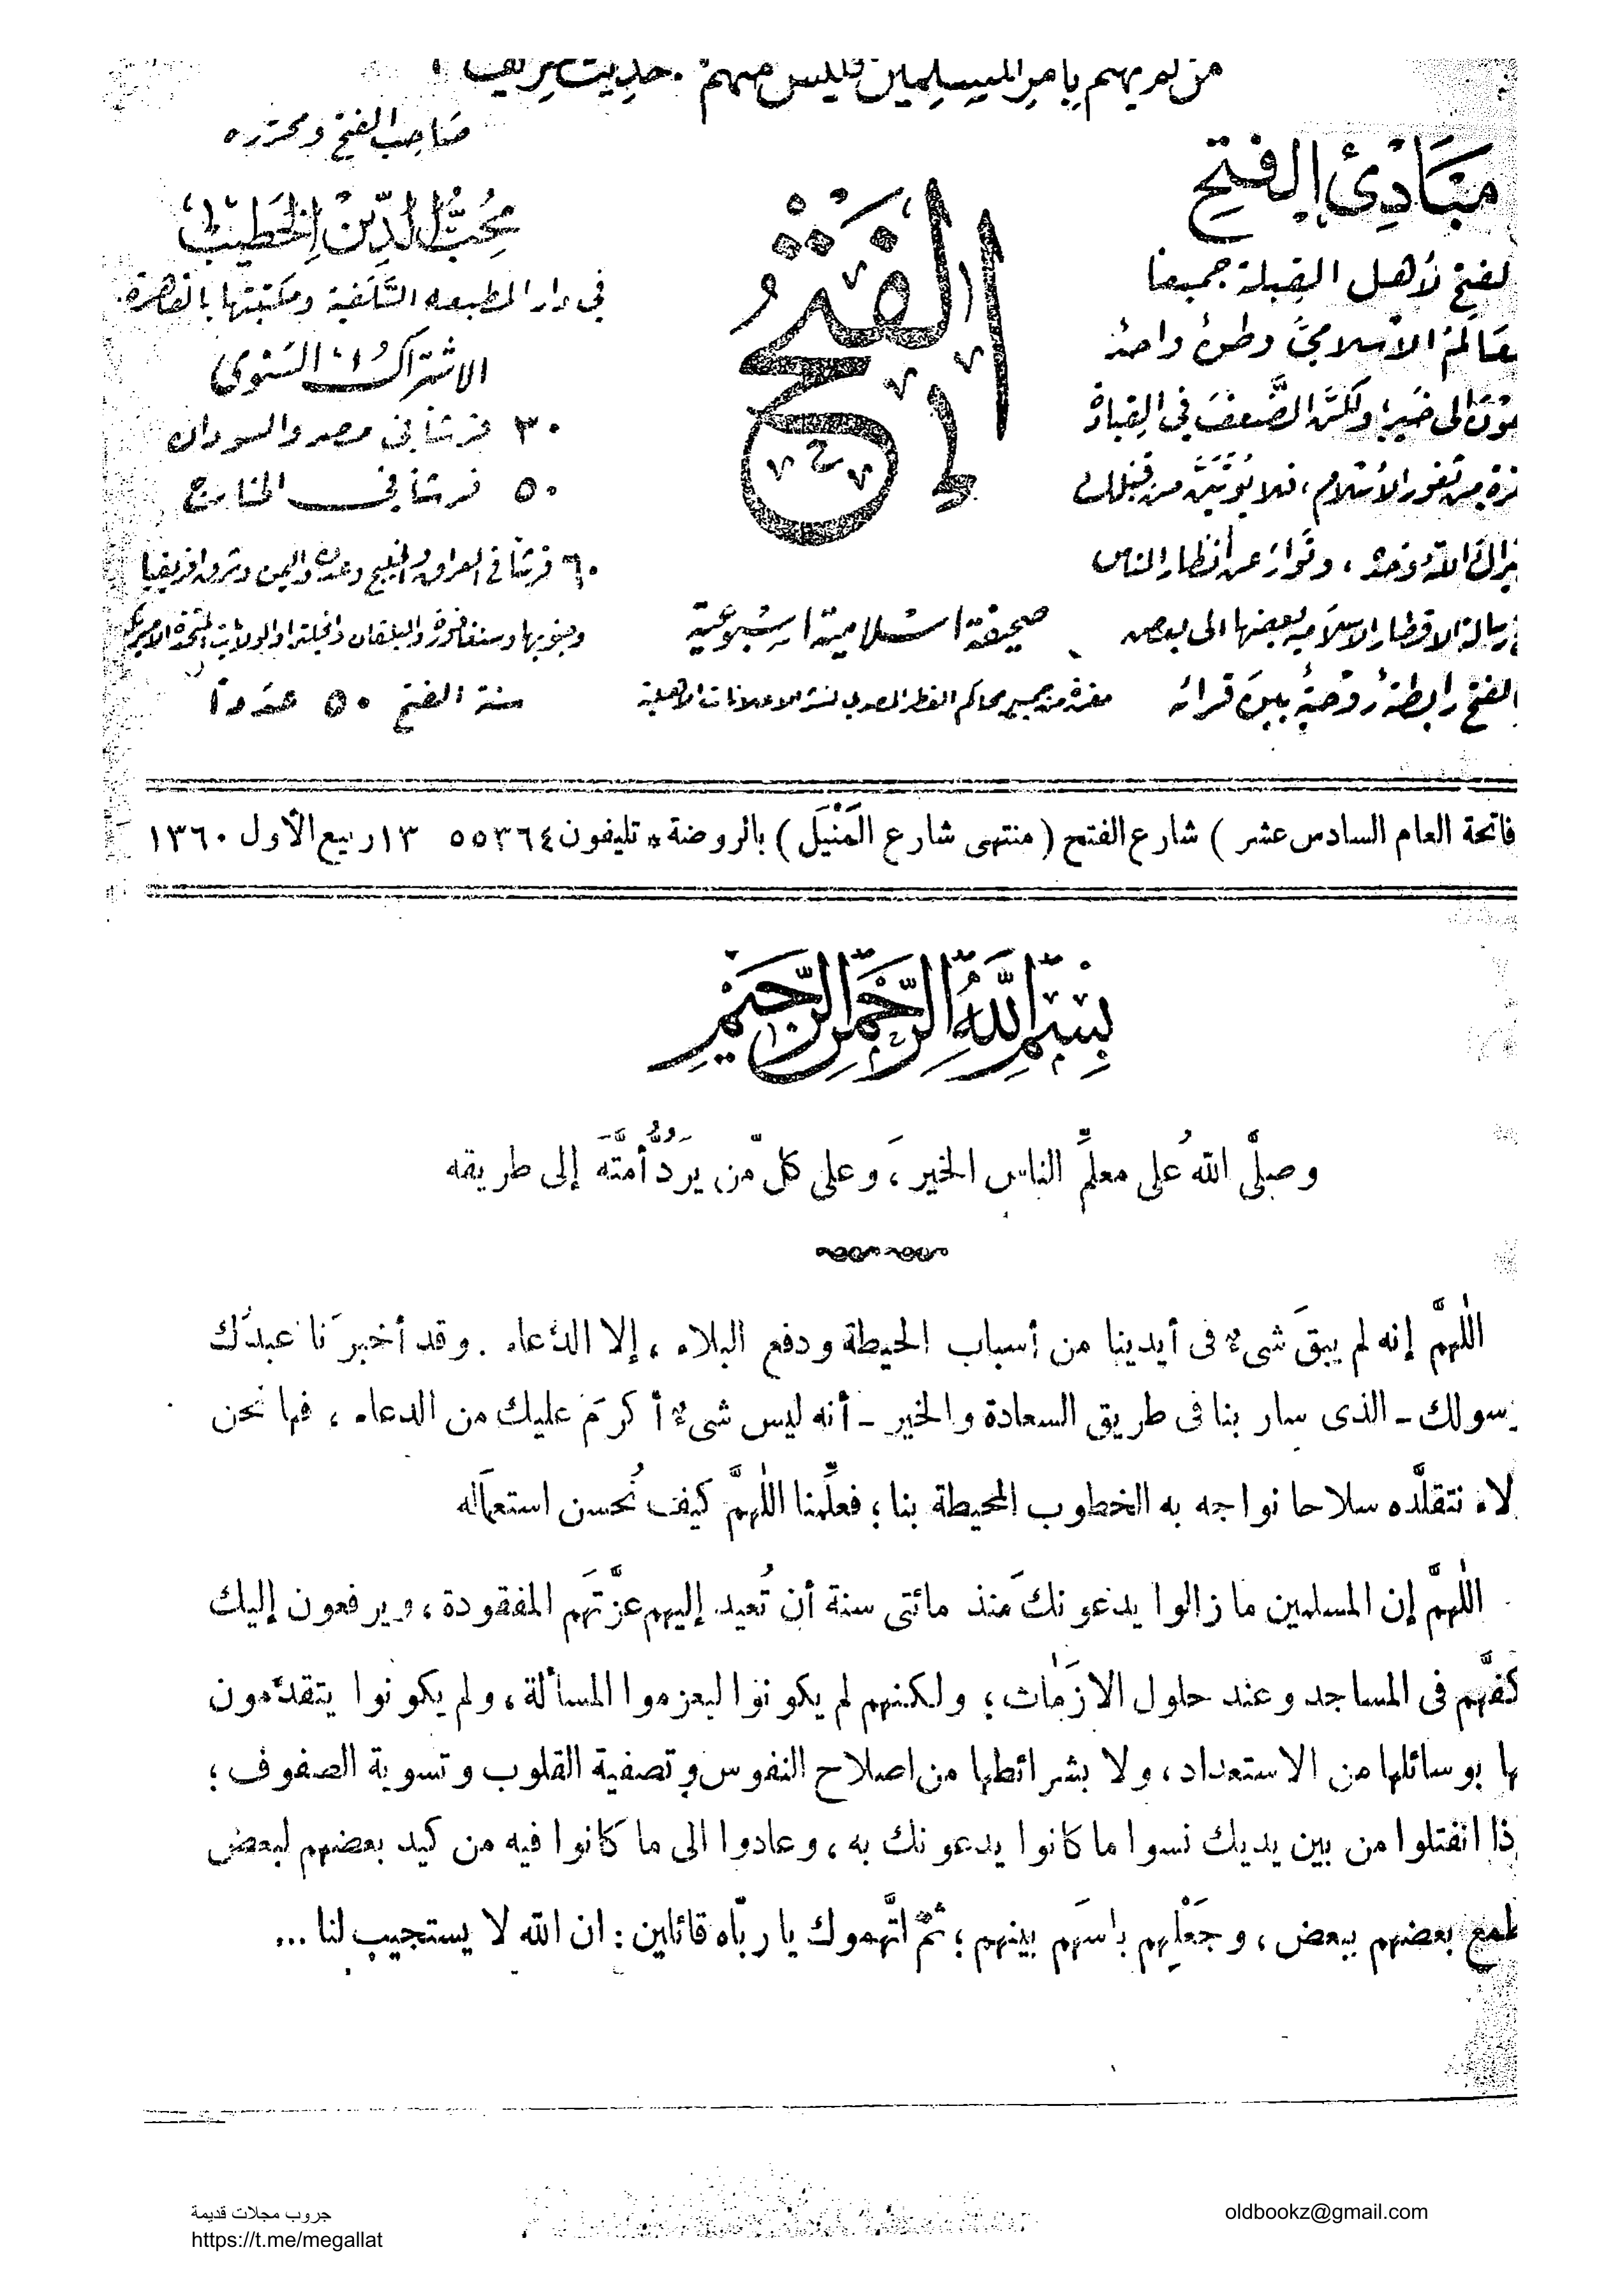 من لم يهتم بأمر المسلمين فليس منهم . حديث شريف
مَبَادِئ الفتح
لفتح لأهل القبلة جميعا
عَالَمُ الاسلامي وطن واحد
الى خير، ولكن الضعف في القيادة
من ثغور الاسلام، فلا يؤتين من قبلك
الله وحده ، وتوار عن أنظار الناس
رسالة الاقطار الاسلامية بعضها الى بعض
الفتح رابطة روحية بين قرائه
الفتح
صحيفة اسلامية اسبوعية
مقررة من جميع محاكم القطر المصري لنشر الاعلانات الأهلية
صَاحِب الفتح ومحرره
مُحِبُّ الدِّين الخَطيب
في دار المطبعة السَّلَفية ومكتبتها بالقاهرة
الاشتراك السنوى
٣٠ قرشاً في مصر والسودان
٥٠ قرشاً في الخارج
٦٠ قرشاً في العراق والخليج وعدن واليمن وشرق افريقيا
وجنوبها وسنغافورة والبلقان وانجلترا والولايات المتحدة الامريكية
سنة الفتح ٥٠ عدداً
فاتحة العام السادس عشر ) شارع الفتح ( منتهى شارع المَنْيَل ) بالروضة * تليفون ٥٥٣٦٤ ١٣ ربيع الأول ١٣٦٠
بِسْمِ اللَّهِ الرَّحْمنِ الرَّحِيمِ
وصلَّى اللهُ على معلِّم الناس الخيرَ ، وعلى كلّ من يرَدُّ أمتَّه إلى طريقه
اللهمَّ إنه لم يبقَ شىءٌ فى أيدينا من أسباب الحيطة ودفع البلاء ، إلا الدّعاء . وقد أخبرَنا عبدُك
رسولك ــ الذى سار بنا فى طريق السعادة والخير ــ أنه ليس شىءٌ أكرمَ عليك من الدعاء ، فها نحن
لاء نتقلَّده سلاحا نواجه به الخطوب المحيطة بنا ؛ فعلِّمنا اللهمَّ كيف نُحسن استعمَاله
اللهمَّ إن المسلمين ما زالوا يدعونكَ منذ مائتى سنة أن تُعيد إليهم عزَّتَهم المفقودة ، ويرفعون إليك
كفَّهم فى المساجد وعند حلول الازَمات ؛ ولكنهم لم يكونوا ليعزموا المسألة ، ولم يكونوا يتقدّمون
ها بوسائلها من الاستعداد ، ولا بشرائطها من اصلاح النفوس وتصفية القلوب وتسوية الصفوف ؛
ذا انفتلوا من بين يديك نسوا ما كانوا يدعونك به ، وعادوا الى ما كانوا فيه من كيد بعضهم لبعض
طمع بعضهم ببعض ، وجَعْلِهم بأسَهم بينهم ؛ ثمّ اتَّهموك يا ربّاه قائلين : ان الله لا يستجيب لنا ...
جروب مجلات قديمة
https://t.me/megallat
oldbookz@gmail.com